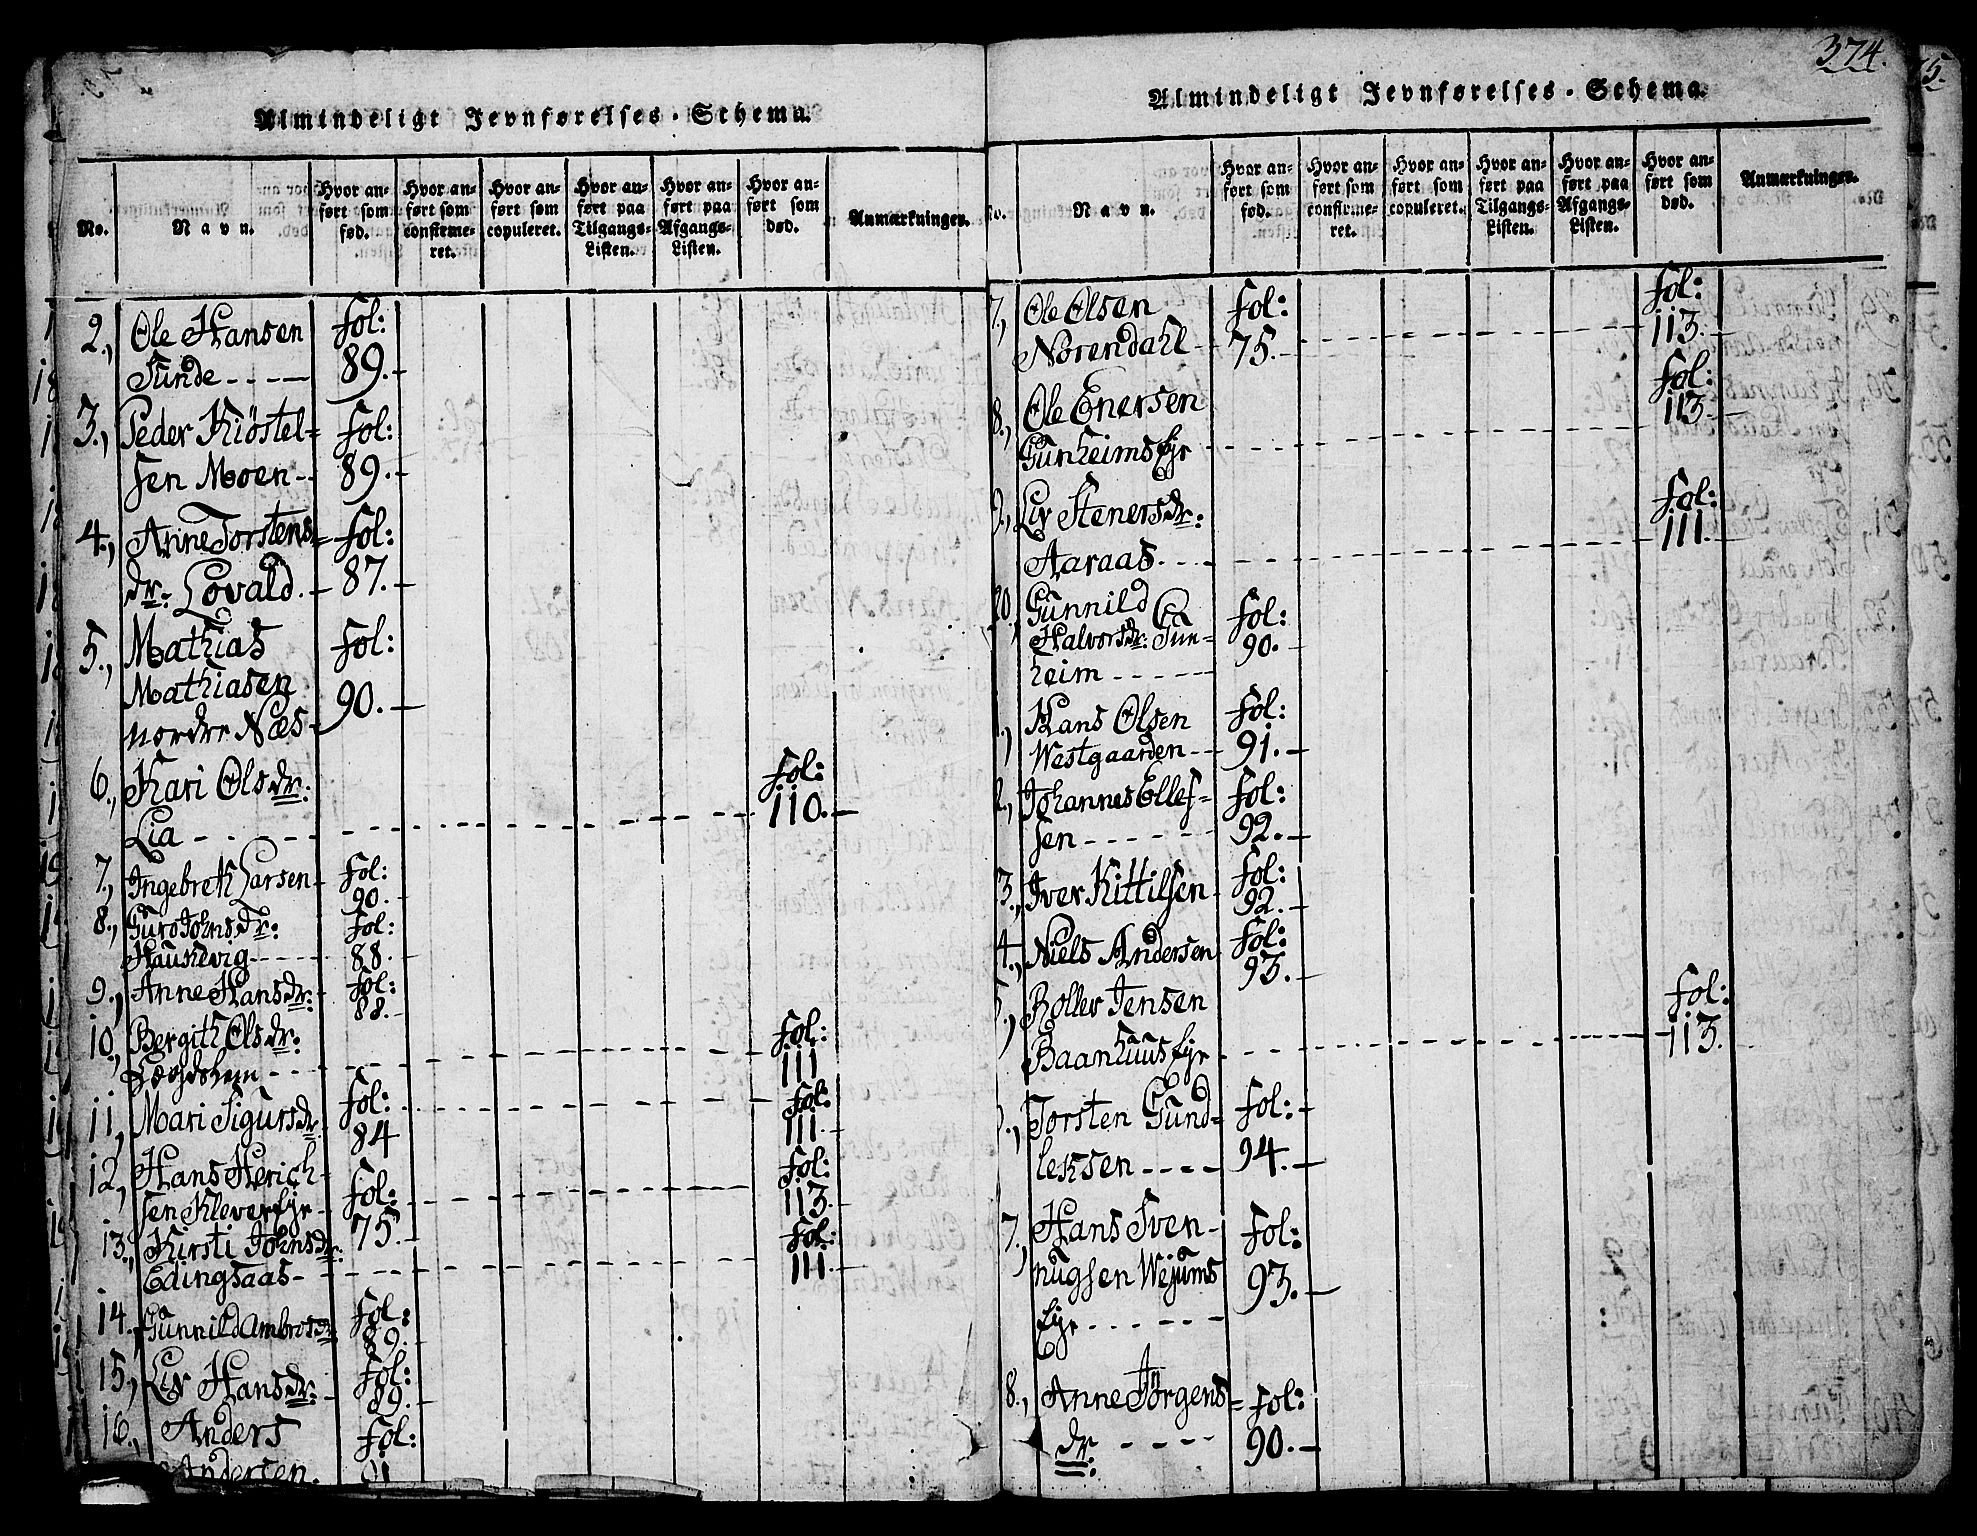 Almindeligt Jevnførelses-Schema.
No.
Navn.
Hvor anført som fød.
Hvor anført som confirmeret.
Hvor anført som copuleret.
Hvor anført paa Tilgangs-Listen.
Hvor anført paa Afgangs-Listen.
Hvor anført som død.
Anmærkninger.
2., Ole Hansen Fol:
Sunde 89.
3., Peder Kiöstel= Fol:
sen Moen 89.
4., Anne Torstens= Fol:
dr: Lovald 87.
5., Mathias Fol:
Mathiasen
nordre Næs 90.
6., Kari Olsdr: Fol:
Lia 110.
7., Ingebreth Larsen Fol:
90.
8., Guro Johnsdr: Fol:
Haukevig 88.
9., Anne Hansdr: Fol:
88.
10., Bergith Olsdr: Fol:
111
11, Mari Sigursdr Fol: Fol:
84 111
12, Hans Herich- Fol: Fol:
sen Kleverejr 75. 113.
13., Kirsti Johnsdr: Fol:
Edingsaas 111
14., Gunnild Ambrosdr Fol:
89.
15., Liv Hansdr: Fol:
89.
16., Anders Fol:
Andersen. 91
374.
Almindeligt Jevnførelses-Schema.
No.
Navn.
Hvor anført som fød.
Hvor anført som confirmeret.
Hvor anført som copuleret.
Hvor anført paa Tilgangs-Listen.
Hvor anført paa Afgangs-Listen.
Hvor anført som død.
Anmærkninger.
7., Ole Olsen Fol: Fol:
Norendahl 75. 113.
8., Ole Enersen Fol:
Gunheimsejr 113
9., Liv Stenersdr: Fol:
Aaraas 111.
20., Gunnild
Halvorsdr: Gun= Fol:
heim 90.
Hans Olsen Fol:
Westgaarden 91.
2., Johannes Ellef= Fol:
sen 92.
3., Iver Kittilsen Fol:
92.
4., Niels Andersen Fol:
93.
5., Roller Jensen Fol:
Baanhuusejr 113.
Torsten Gund= Fol:
leksen 94.
7., Hans Sven- Fol:
nugsen Wejums 93.
ejr
8., Anne Jörgens= Fol:
dr: 90.